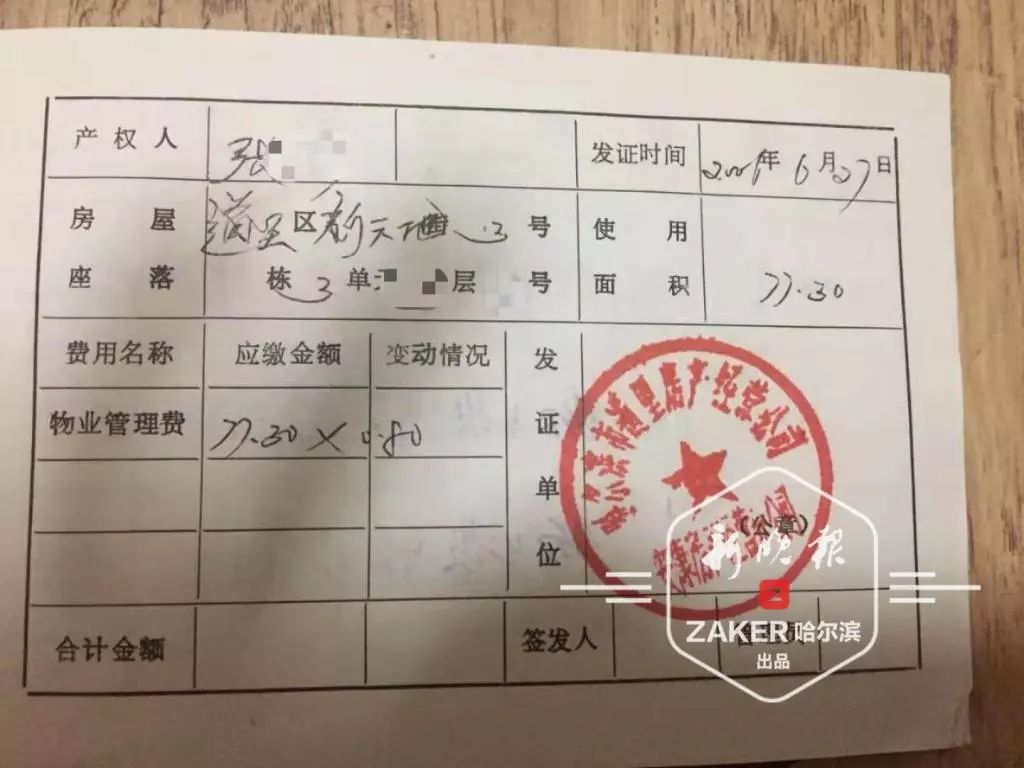 产权人 张 发证时间 2001年6月27日
房屋 道里区新天地 3号 使用
座落 栋3单 层 号 面积 77.30
费用名称 应缴金额 变动情况 发
物业管理费 77.30×0.80 证
单
(公章)
位
合计金额 签发人
哈尔滨市道里房产经营公司
新晚报
ZAKER哈尔滨
出品